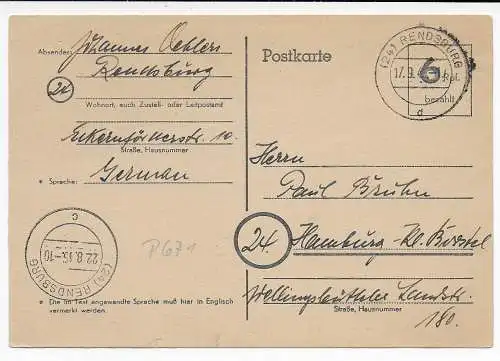 Absender: Johannes Oehlers
Rendsburg
24
Wohnort, auch Zustell- oder Leitpostamt
Eckernförderstr. 10.
Straße, Hausnummer
* Sprache: German
c
22.8.46.-10
(24) RENDSBURG
P 671
* Die im Text angewandte Sprache muß hier in Englisch
vermerkt werden.
Postkarte
(24) RENDSBURG
17.9.
6 Rpf.
bezahlt
d
Herrn
Paul Bruhn
24 Hamburg-Kl. Borstel
Wellingsbüttler Landstr.
Straße, Hausnummer
180.